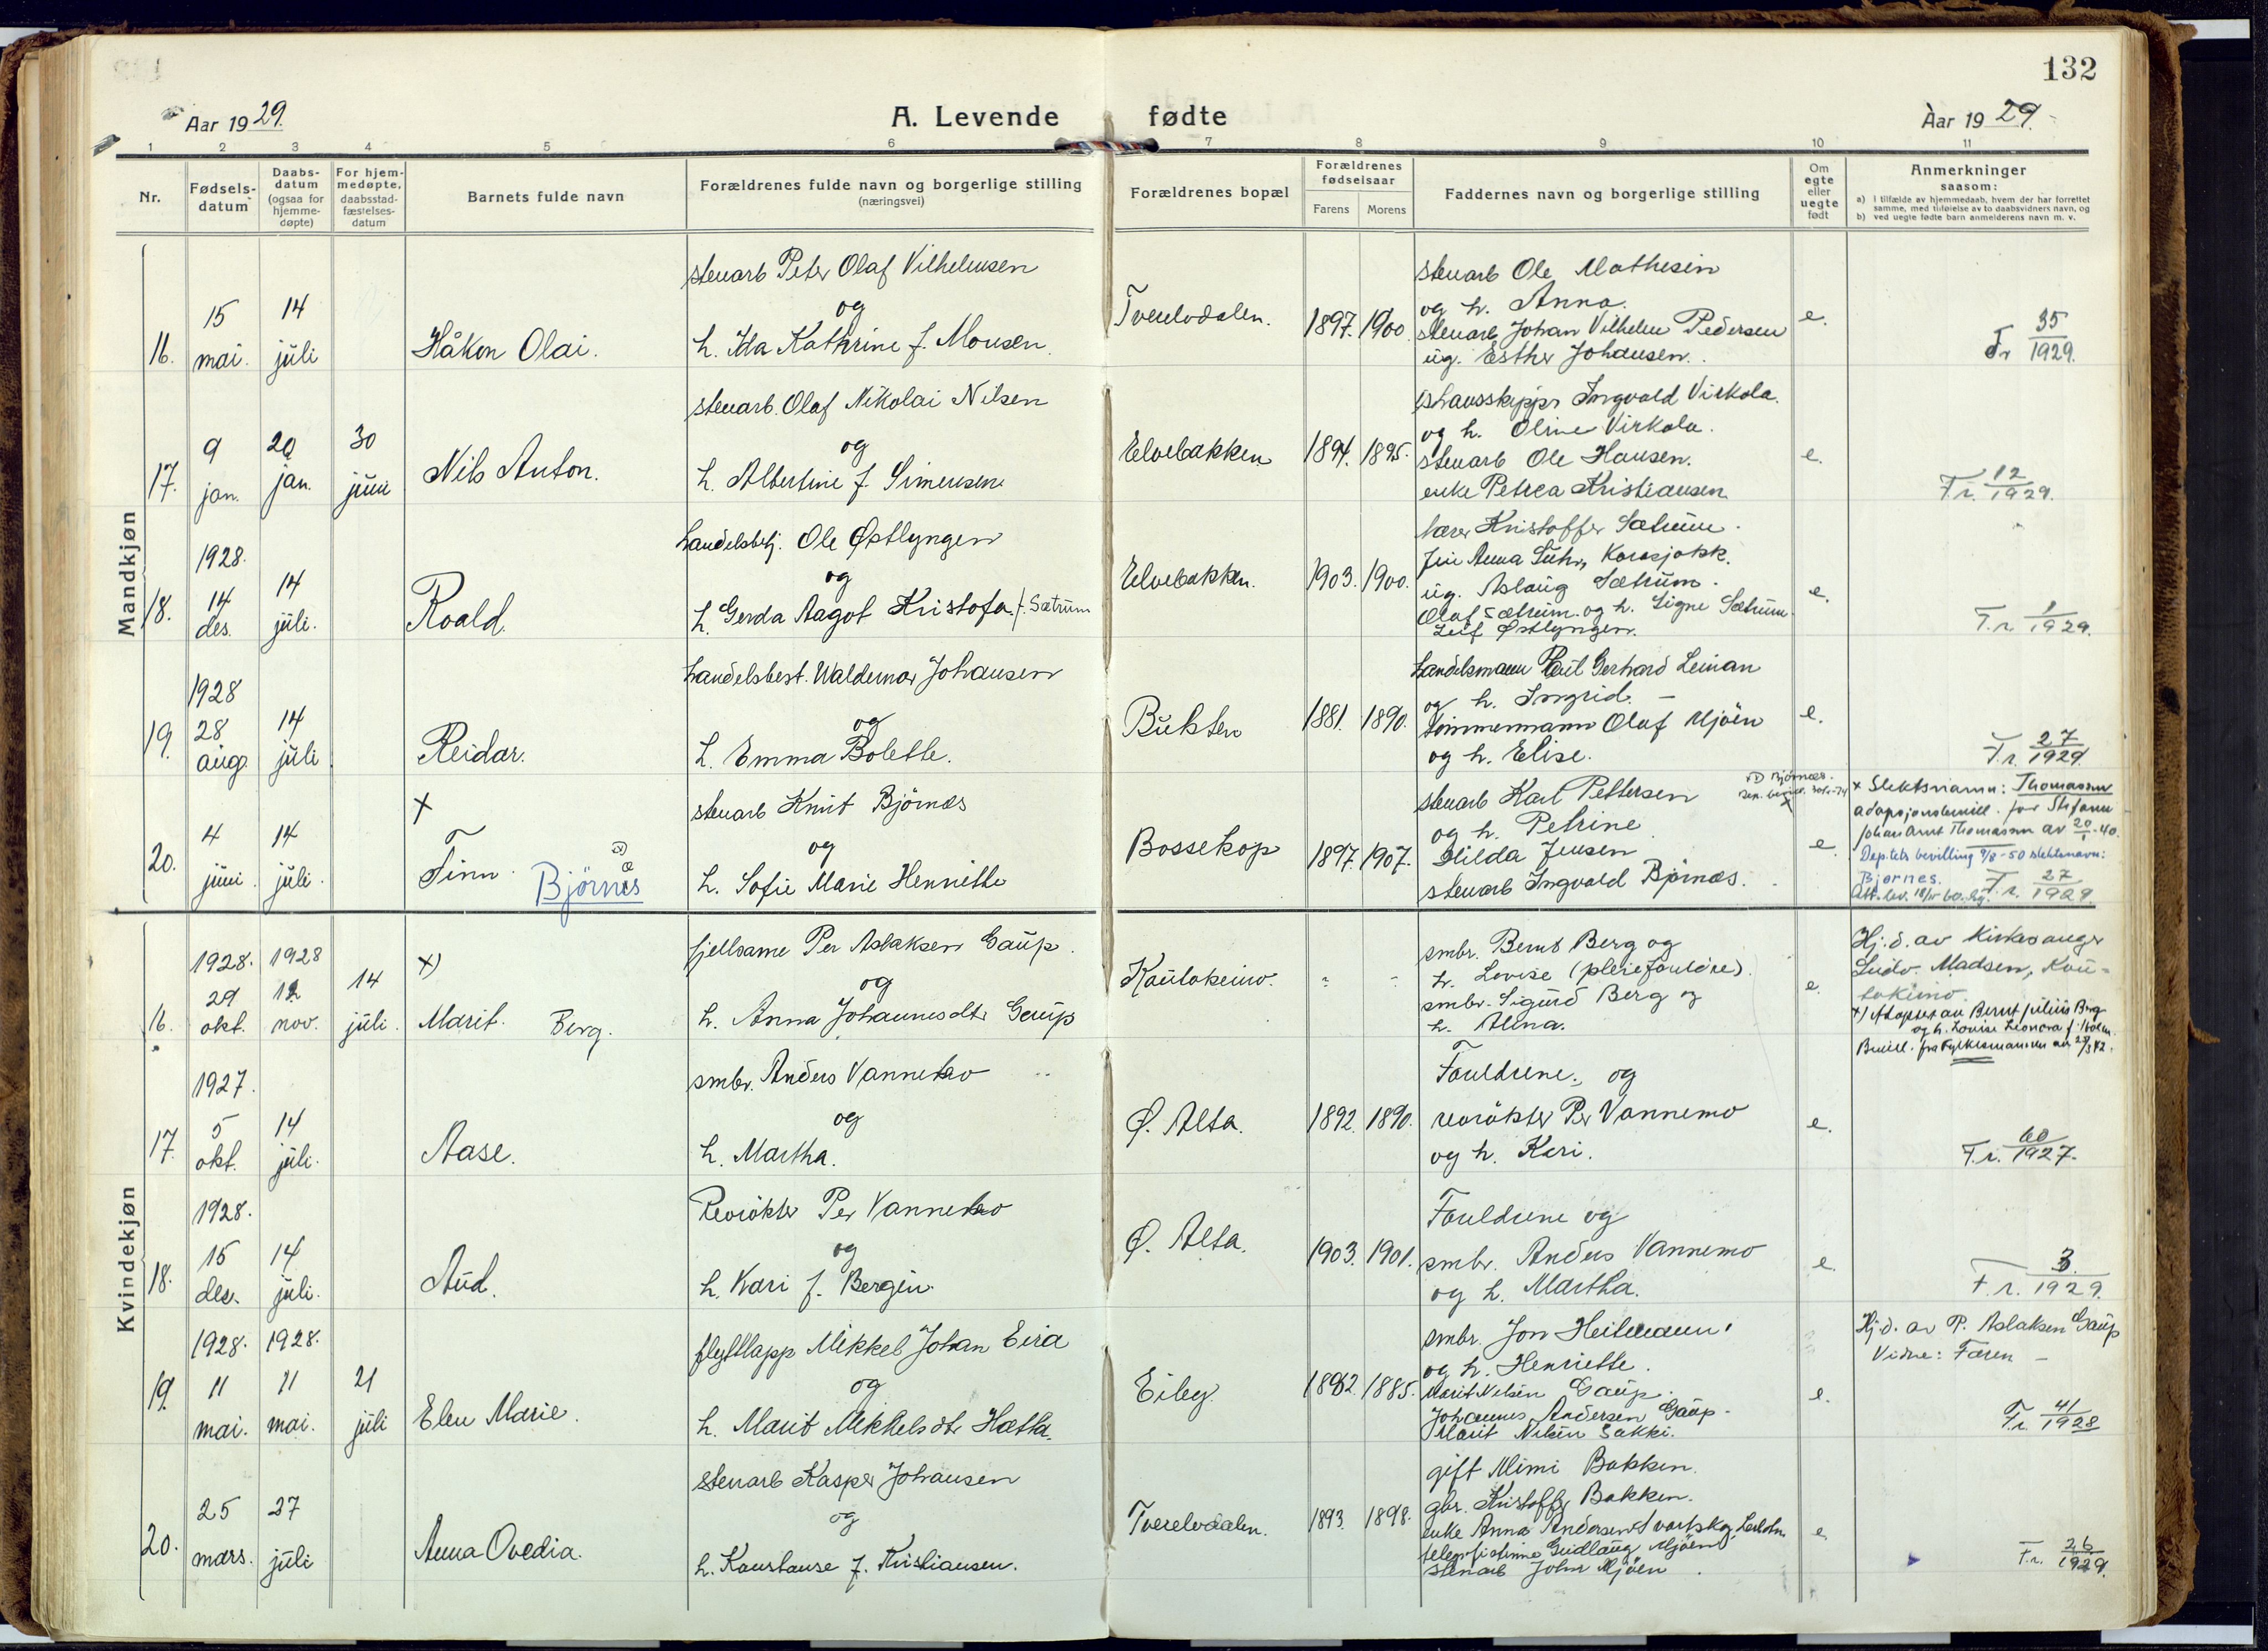 132
Aar 1929.
A. Levende fødte
Aar 1929.
1 2 3 4 5 6 7 8 9 10 11
Nr.
Fødselsdatum
Daabsdatum (ogsaa for hjemmedøpte)
For hjemmedøpte, daabsstadfæstelsesdatum
Barnets fulde navn
Forældrenes fulde navn og borgerlige stilling
(næringsvei)
Forældrenes bopæl
Forældrenes fødselsaar
Farens Morens
Faddernes navn og borgerlige stilling
Om egte eller uegte født
Anmerkninger
saasom:
a) I tilfælde av hjemmedaab, hvem der har forrettet samme, med tilføielse av to daabsvidners navn, og
b) ved uegte fødte barn anmelderens navn m. v.
Mandkjøn
16.
15 mai.
14 juli
Håkon Olai.
stenarb Peter Olaf Vilhelmsen
og
h. Ida Kathrine f. Monsen.
Tverelvdalen.
1897. 1900.
stenarb Ole Mathesen
og h. Anna.
stenarb Johan Vilhelm Pedersen
ug. Esther Johansen.
e.
Fr 35/1929.
17.
9 jan.
20 jan.
30 juni
Nils Anton.
stenarb. Olaf Nikolai Nilsen
og
h. Albertine f. Simensen
Elvebakken
1894. 1895.
Ingvald Virkola.
og h. Oline Virkola.
stenarb Ole Hansen.
enke Petrea Kristiansen
e.
F.r. 12/1929.
18.
1928.
14 des.
14 juli.
Roald.
handelsbetj. Ole Østlyngen
og
h. Gerda Aagot Kristofa f. Sætrum
Elvebakken.
1903. 1900.
lærer Kristoffer Sætrum.
Anna Suhr, Karasjokk.
ug. Aslaug Sætrum.
Olaf Sætrum og h. Signe Sætrum.
Leif Østlyngen.
e.
F.r. 1/1929.
19.
1928
28 aug.
14 juli
Reidar.
handelsbest. Waldemar Johansen
og
h. Emma Bolette.
Bukten
1881. 1890.
handelsmann Paul Gerhard Leinan
og h. Ingrid. -
tømmermann Olaf Mjøen
og h. Elise.
e.
F.r. 27/1929
20.
4 juni.
14 juli.
x
Finn. Björnes
stenarb Knut Björnæs
og
h. Sofie Marie Henriette
Bossekop
1897. 1907.
stenarb Karl Pettersen
og h. Petrine.
Hilda Jensen
stenarb Ingvald Björnæs.
e.
x Slektsnamn: Thomassen
adopsjonsbevill. for Stefanu
Johan Arnt Thomassen av 20/1-40.
Dep.tets bevilling 9/8-50 slektsnavn:
Bjørnes. F.r. 27/1929.
Kvindekjøn
16.
1928. 29 okt.
1928 12 nov.
14 juli.
x)
Marit. Berg.
fjellsame Per Aslaksen Gaup.
og
h. Anna Johannesdtr Gaup
Kautokeino.
smbr. Bernt Berg og
h. Lovise (pleieforeldre).
smbr. Sigurd Berg og
h. Alma.
e.
Hj.d. av kirkesanger
Ludv. Madsen, Kau-
tokeino.
x) Adoptert av Bernt Julius Berg
og h. Lovise Leonora f. Holm.
Bevill. fra Fylkesmannen av 23/3 42.
17.
1927.
5 okt.
14 juli.
Aase.
smbr. Anders Vannebo
og
h. Martha.
Ø. Alta.
1892. 1890.
Foreldrene, og
revrökter Per Vannemo
og h. Kari.
e.
F.r. 60/1927.
18.
1928.
15 des.
14 juli.
Aud.
Revrökter Per Vannebo
og
h. Kari f. Bergin.
Ø. Alta.
1903. 1901.
Foreldrene og
smbr. Anders Vannemo
og h. Martha.
e.
F.r. 3/1929.
19.
1928. 11 mai.
1928. 11 mai.
21 juli
Elen Marie.
flyttlapp Mikkel Johan Eira
og
h. Marit Mikkelsdtr Hætta.
Eiby.
1882. 1885.
smbr. Jon Heitmann.
og h. Henriette.
Marit Nilsen Gaup.
Johannes Andersen Gaup.
Marit Nilsen Sakki.
e.
Hj.d. av P. Aslaksen Gaup
Vidne: Faren -
F.r. 41/1928
20.
25 mars.
27 juli
Anna Ovedia.
stenarb Kasper Johansen
og
h. Konstanse f. Kristiansen.
Tverelvdalen.
1893. 1898.
gift Mimi Bakken.
gbr. Kristoffer Bakken.
enke Anna Andersen
Gudlaug Mjöen
stenarb John Mjöen.
e.
F.r. 26/1929.